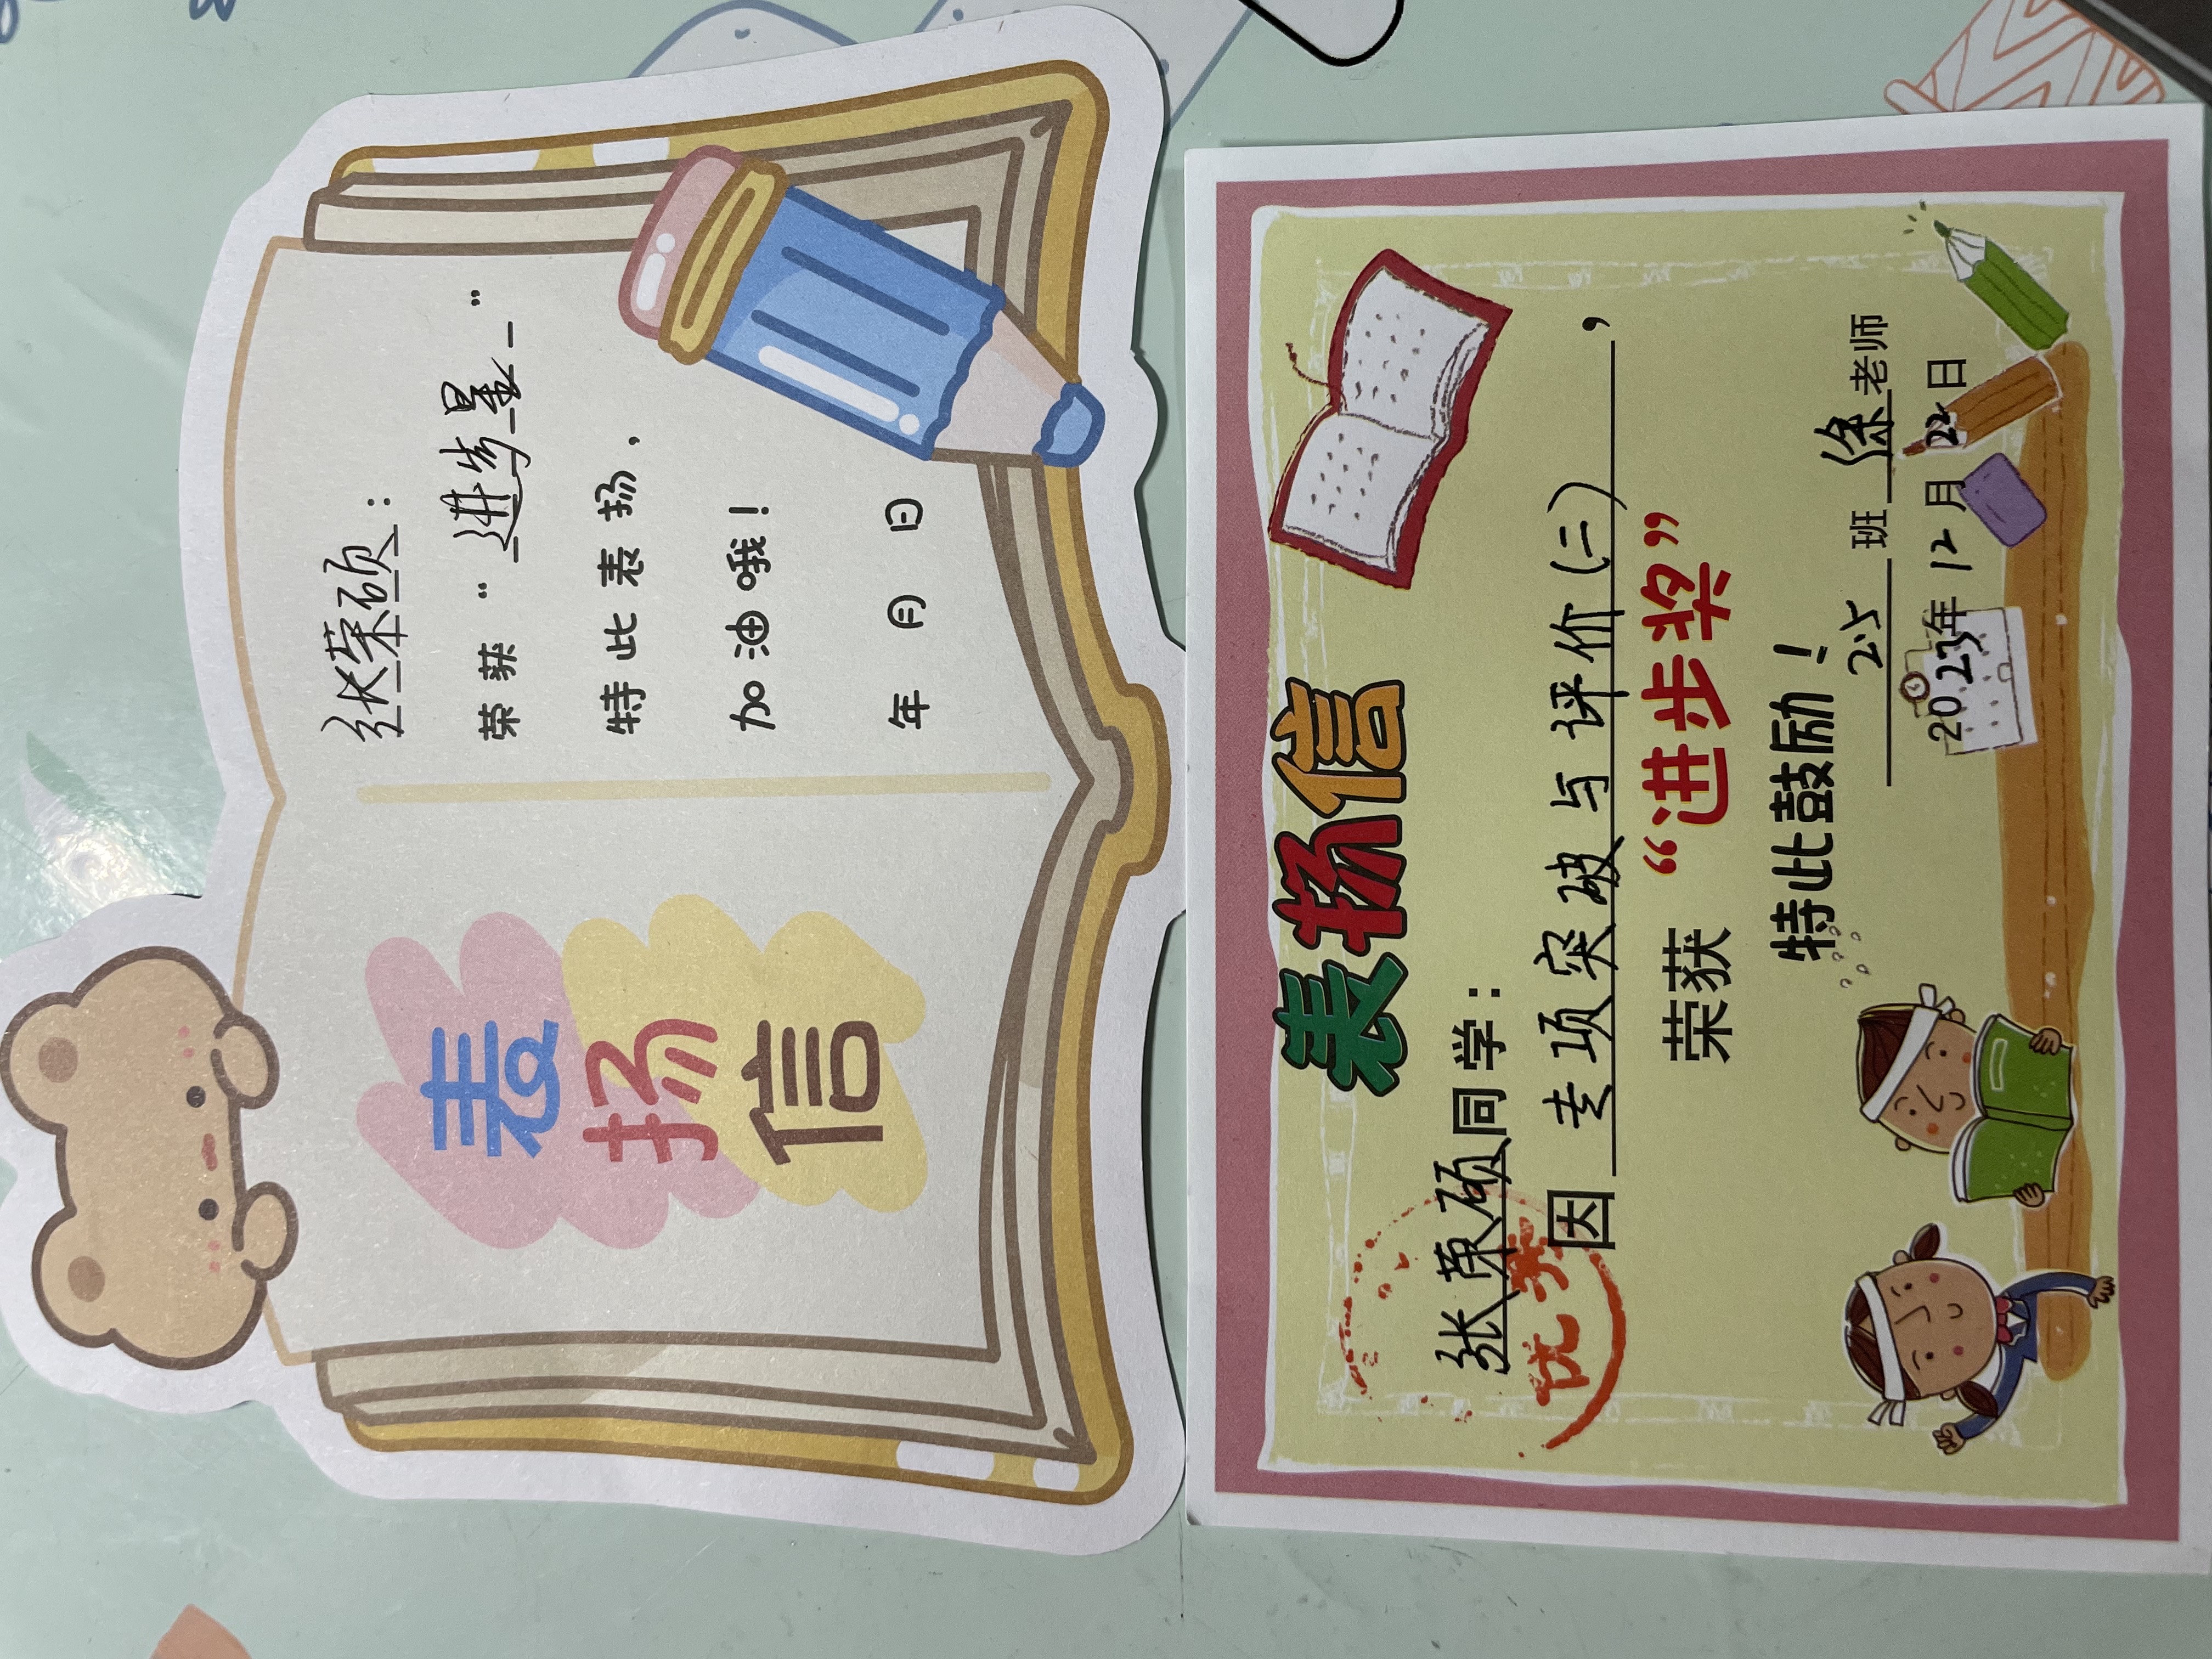 表
扬
信
张荣硕：
荣获“进步星”
特此表扬，
加油哦！
年 月 日
表扬信
张荣硕同学：
因专项突破与评价(二)，
荣获“进步奖”
特此鼓励！
2.5班徐老师
2023年12月22日